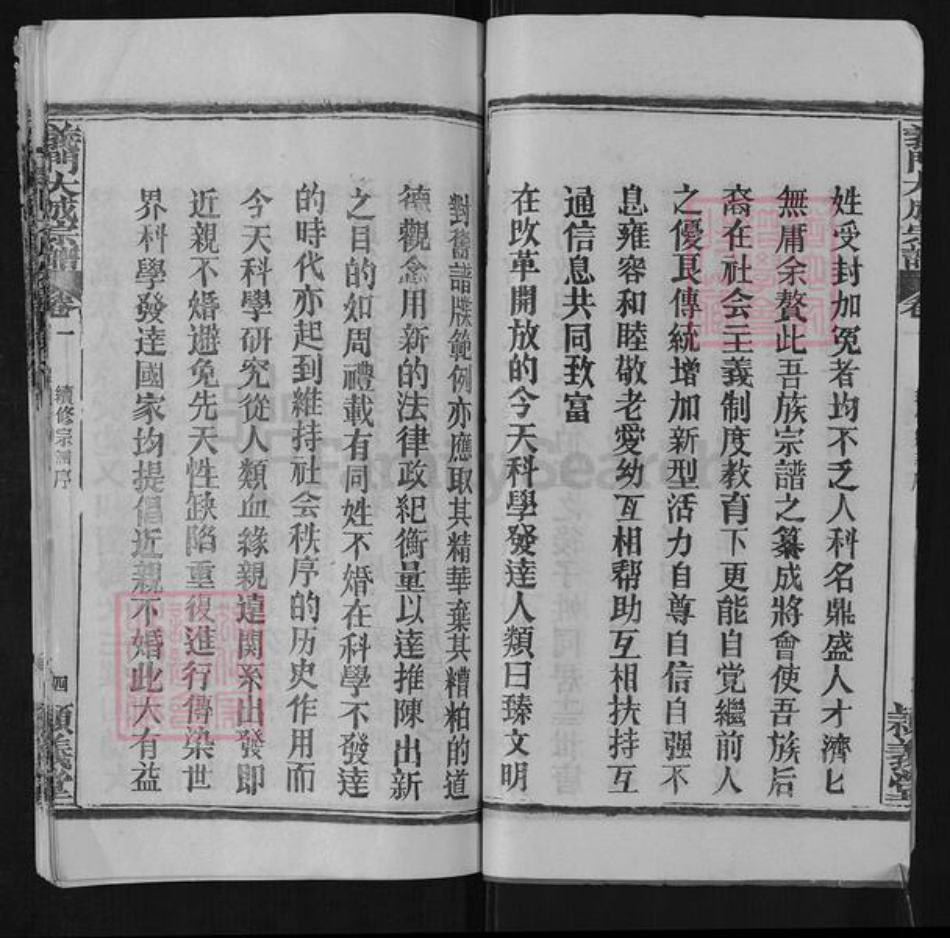 姓受封加冕者均不乏人科名鼎盛人才濟匕
無庸余贅此吾族宗譜之纂成將會使吾族后
裔在社会主義制度教育下更能自党繼前人
之優良傳統增加新型活力自尊自信自强不
息雍容和睦敬老愛幼互相幇助互相扶持互
通信息共同致富
在改革開放的今天科學發達人類曰臻文明
對舊譜牒範例亦應取其精華棄其糟粕的道
德觀念用新的法律政紀衡量以達推陳出新
之目的如周禮載有同姓不婚在科學不發達
的時代亦起到維持社会秩序的历史作用而
今天科學研究從人類血緣親遠関系出發即
近親不婚避免先天性缺陷重復進行傳染世
界科學發達國家均提倡近親不婚此大有益
義門大成宗譜 卷一 續修宗譜序 四 顯義堂